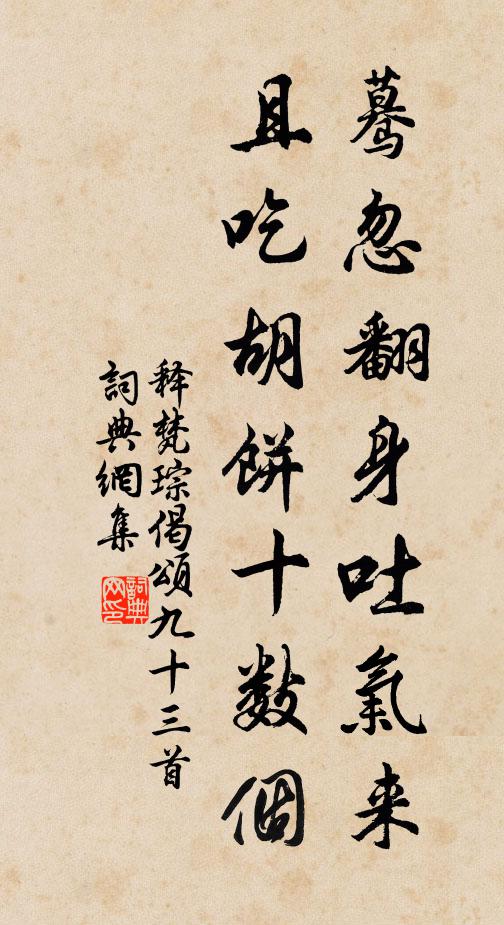 驀忽翻身吐氣来
且吃胡餅十數個
释梵琮偈頌九十三首
詞典網集
詞典网印